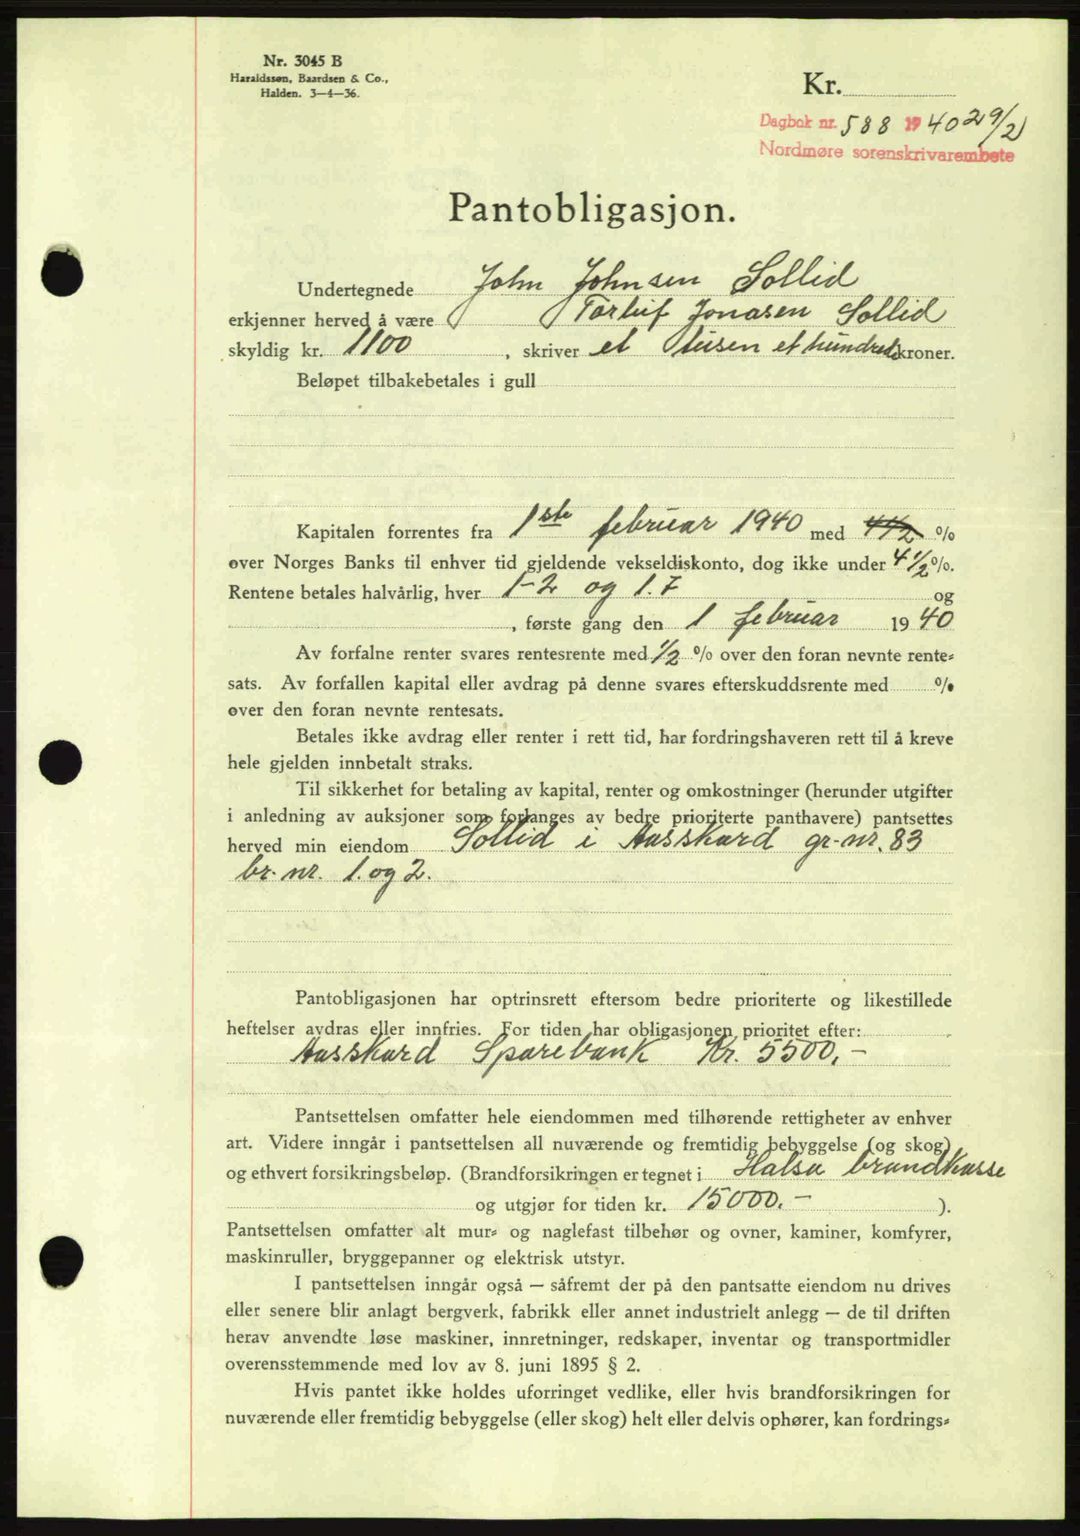 Nr. 3045 B
Haraldssøn, Baardsen & Co.,
Halden. 3—4—36.
Kr.
Dagbok nr. 588 1940 29/2
Nordmøre sorenskrivarembete
Pantobligasjon.
Undertegnede John Johnsen Sollid
erkjenner herved å være Torleif Jonasen Sollid
skyldig kr. 1100, skriver et tusen et hundrede kroner.
Beløpet tilbakebetales i gull
Kapitalen forrentes fra 1ste februar 1940 med 4 1/2 %
over Norges Banks til enhver tid gjeldende vekseldiskonto, dog ikke under 4 1/2 %.
Rentene betales halvårlig, hver 1-2 og 1.7 og
, første gang den 1 februar 1940
Av forfalne renter svares rentesrente med 1/2 % over den foran nevnte rente-
sats. Av forfallen kapital eller avdrag på denne svares efterskuddsrente med %
over den foran nevnte rentesats.
Betales ikke avdrag eller renter i rett tid, har fordringshaveren rett til å kreve
hele gjelden innbetalt straks.
Til sikkerhet for betaling av kapital, renter og omkostninger (herunder utgifter
i anledning av auksjoner som forlanges av bedre prioriterte panthavere) pantsettes
herved min eiendom Sollid i Aasskard gr.nr. 83
br.nr. 1. og 2.
Pantobligasjonen har optrinsrett eftersom bedre prioriterte og likestillede
heftelser avdras eller innfries. For tiden har obligasjonen prioritet efter:
Aasskard Sparebank Kr. 5500,-
Pantsettelsen omfatter hele eiendommen med tilhørende rettigheter av enhver
art. Videre inngår i pantsettelsen all nuværende og fremtidig bebyggelse (og skog)
og ethvert forsikringsbeløp. (Brandforsikringen er tegnet i Halsa brandkasse
og utgjør for tiden kr. 15000.- ).
Pantsettelsen omfatter alt mur- og naglefast tilbehør og ovner, kaminer, komfyrer,
maskinruller, bryggepanner og elektrisk utstyr.
I pantsettelsen inngår også — såfremt der på den pantsatte eiendom nu drives
eller senere blir anlagt bergverk, fabrikk eller annet industrielt anlegg — de til driften
herav anvendte løse maskiner, innretninger, redskaper, inventar og transportmidler
overensstemmende med lov av 8. juni 1895 § 2.
Hvis pantet ikke holdes uforringet vedlike, eller hvis brandforsikringen for
nuværende eller fremtidig bebyggelse (eller skog) helt eller delvis ophører, kan fordrings-